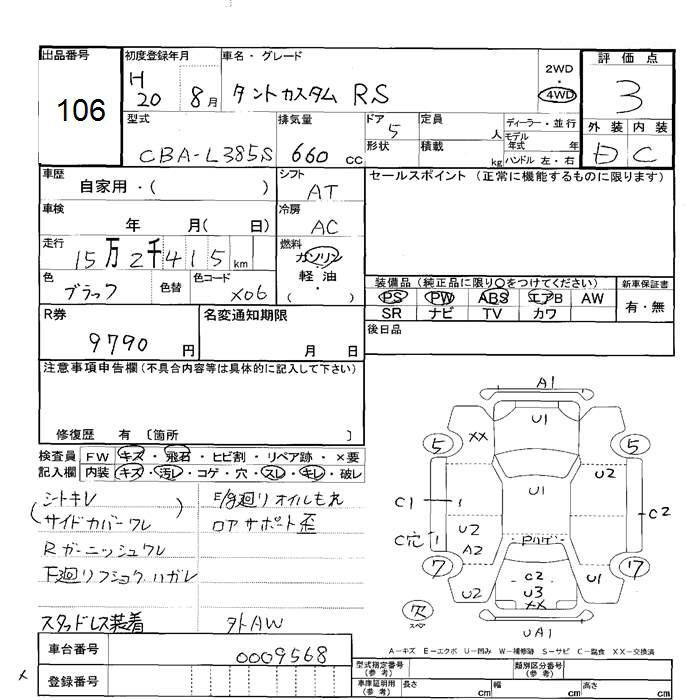 出品番号
106
初度登録年月
H
20 8月
車名・グレード
タントカスタム RS
2WD
・
4WD
評価点
3
外装 内装
D C
型式
CBA-L385S
排気量
660 cc
ドア 5
形状
定員 人
積載 kg
ディーラー・並行
モデル年式 年
ハンドル 左・右
車歴
自家用・( )
シフト
AT
車検
年 月( 日)
冷房
AC
走行
15万2千415 km
燃料
ガソリン
軽油
・
( )
色
ブラック
色替
色コード
X06
セールスポイント (正常に機能するものに限ります)
装備品 (純正品に限り○をつけてください)
PS PW ABS エアB AW
SR ナビ TV カワ
新車保証書
有・無
後日品
R券
9790 円
名変通知期限
月 日
注意事項申告欄 (不具合内容等は具体的に記入して下さい)
修復歴 有 〔箇所 〕
検査員 FW キズ・飛石・ヒビ割・リペア跡・×要
記入欄 内装 キズ・汚レ・コゲ・穴・スレ・キレ・破レ
シートキレ
(サイドカバーワレ)
Rガーニッシュワレ
下廻リフショクハガレ
スタッドレス装着
E/g廻リオイルもれ
ロアサポート歪
外AW
A1
U1
XX
5
5
U1
U2
C1
C2
C穴
U2
A2
Pハゲ
7
7
U2
C2
U3
XX
U1
欠
スペア
UA1
A-キズ E-エクボ U-凹み W-補修跡 S-サビ C-腐食 XX-交換済
車台番号
0009568
登録番号
型式指定番号
(参考)
類別区分番号
(参考)
車庫証明用
(参考)
長さ cm
幅 cm
高さ cm